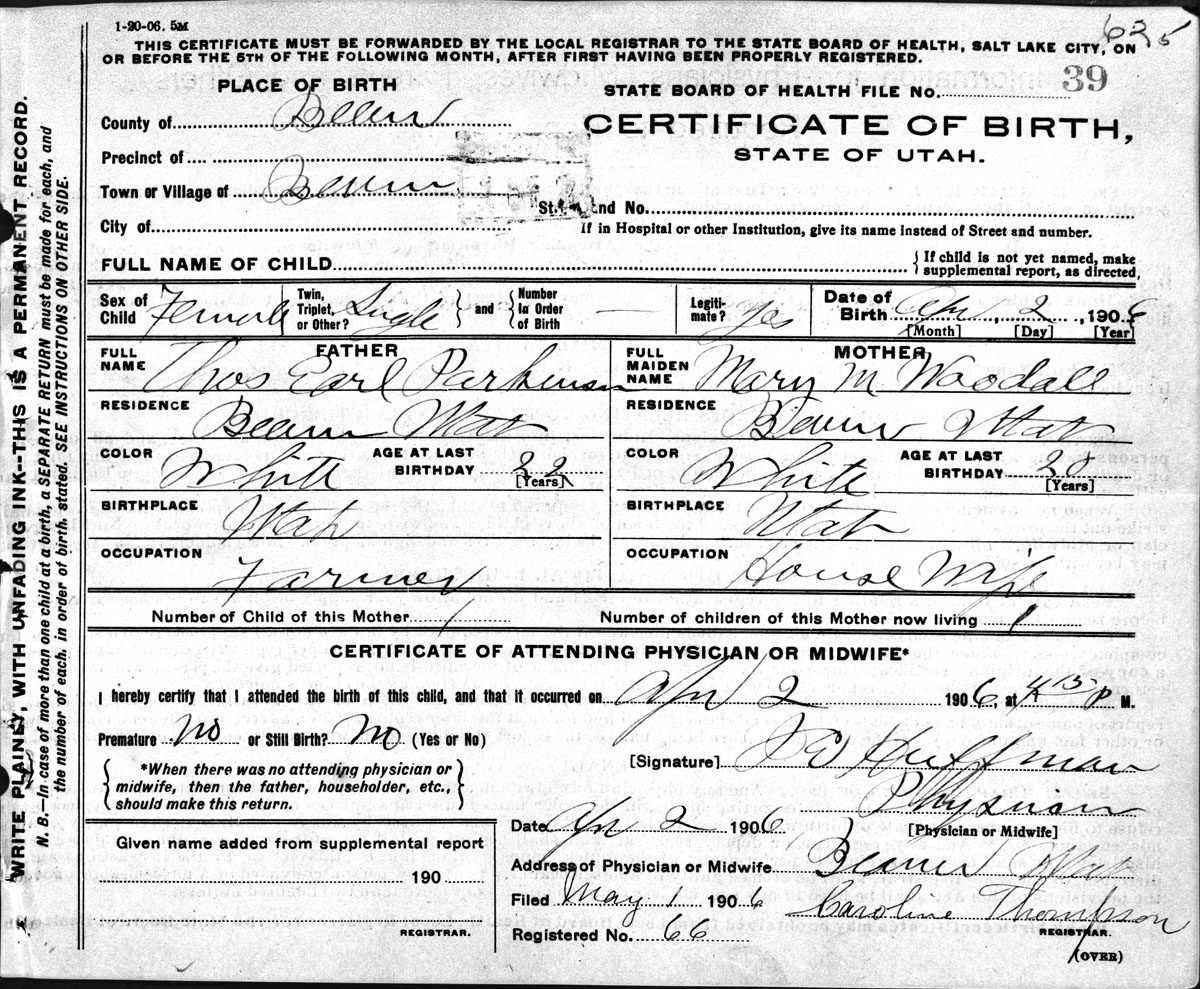 1-20-06. 5M
625
THIS CERTIFICATE MUST BE FORWARDED BY THE LOCAL REGISTRAR TO THE STATE BOARD OF HEALTH, SALT LAKE CITY, ON
OR BEFORE THE 5TH OF THE FOLLOWING MONTH, AFTER FIRST HAVING BEEN PROPERLY REGISTERED.
PLACE OF BIRTH
STATE BOARD OF HEALTH FILE NO. 39
County of Beaver
CERTIFICATE OF BIRTH,
STATE OF UTAH.
Precinct of
Town or Village of Beaver
St. and No.
City of
If in Hospital or other Institution, give its name instead of Street and number.
FULL NAME OF CHILD
If child is not yet named, make
supplemental report, as directed,
Sex of Child Female
Twin, Triplet, or Other? Single
and Number In Order of Birth —
Legiti-mate? Yes
Date of Birth Apr 2, 190
[Month] [Day] [Year]
FATHER
FULL NAME Thos Earl Parkinson
RESIDENCE Beaver Utah
COLOR White
AGE AT LAST BIRTHDAY 22
[Years]
BIRTHPLACE Utah
OCCUPATION Farmer
MOTHER
FULL MAIDEN NAME Mary M Woodall
RESIDENCE Beaver Utah
COLOR White
AGE AT LAST BIRTHDAY 20
[Years]
BIRTHPLACE Utah
OCCUPATION House Wife
Number of Child of this Mother 1
Number of children of this Mother now living 1
CERTIFICATE OF ATTENDING PHYSICIAN OR MIDWIFE*
I hereby certify that I attended the birth of this child, and that it occurred on Apr 2 1906, at 4 15 P M.
Premature No or Still Birth? No (Yes or No)
*When there was no attending physician or
midwife, then the father, householder, etc.,
should make this return.
[Signature] Huffman
Physician
[Physician or Midwife]
Date Apr 2 1906
Address of Physician or Midwife Beaver Utah
Filed May 1 1906 Caroline Thompson
REGISTRAR.
Registered No. 66
(OVER)
Given name added from supplemental report
190
REGISTRAR.
WRITE PLAINLY, WITH UNFADING INK--THIS IS A PERMANENT RECORD.
N. B.—In case of more than one child at a birth, a SEPARATE RETURN must be made for each, and
the number of each, in order of birth, stated. SEE INSTRUCTIONS ON OTHER SIDE.